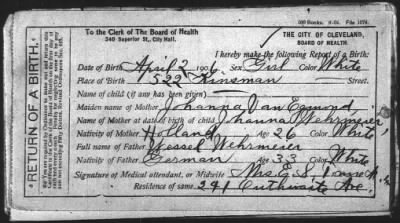 500 Books. 8-05. File 1678.
To the Clerk of The Board of Health
340 Superior St., City Hall.
THE CITY OF CLEVELAND,
BOARD OF HEALTH.
I hereby make the following Report of a Birth:
RETURN OF A BIRTH.
Date of Birth April 2 1906 Sex Girl Color White
Place of Birth 1522 Kinsman Street.
Name of child (if any has been given)
Maiden name of Mother Johanna Van Egmond
Name of Mother at date of birth of child Johanna Wehrmeier
Nativity of Mother Holland Age 26 Color White
Full name of Father Wessel Wehrmeier
Nativity of Father German Age 33 Color White
Signature of Medical attendant, or Midwife Mrs. G. S.
Residence of same 241 Outhwaite Ave.